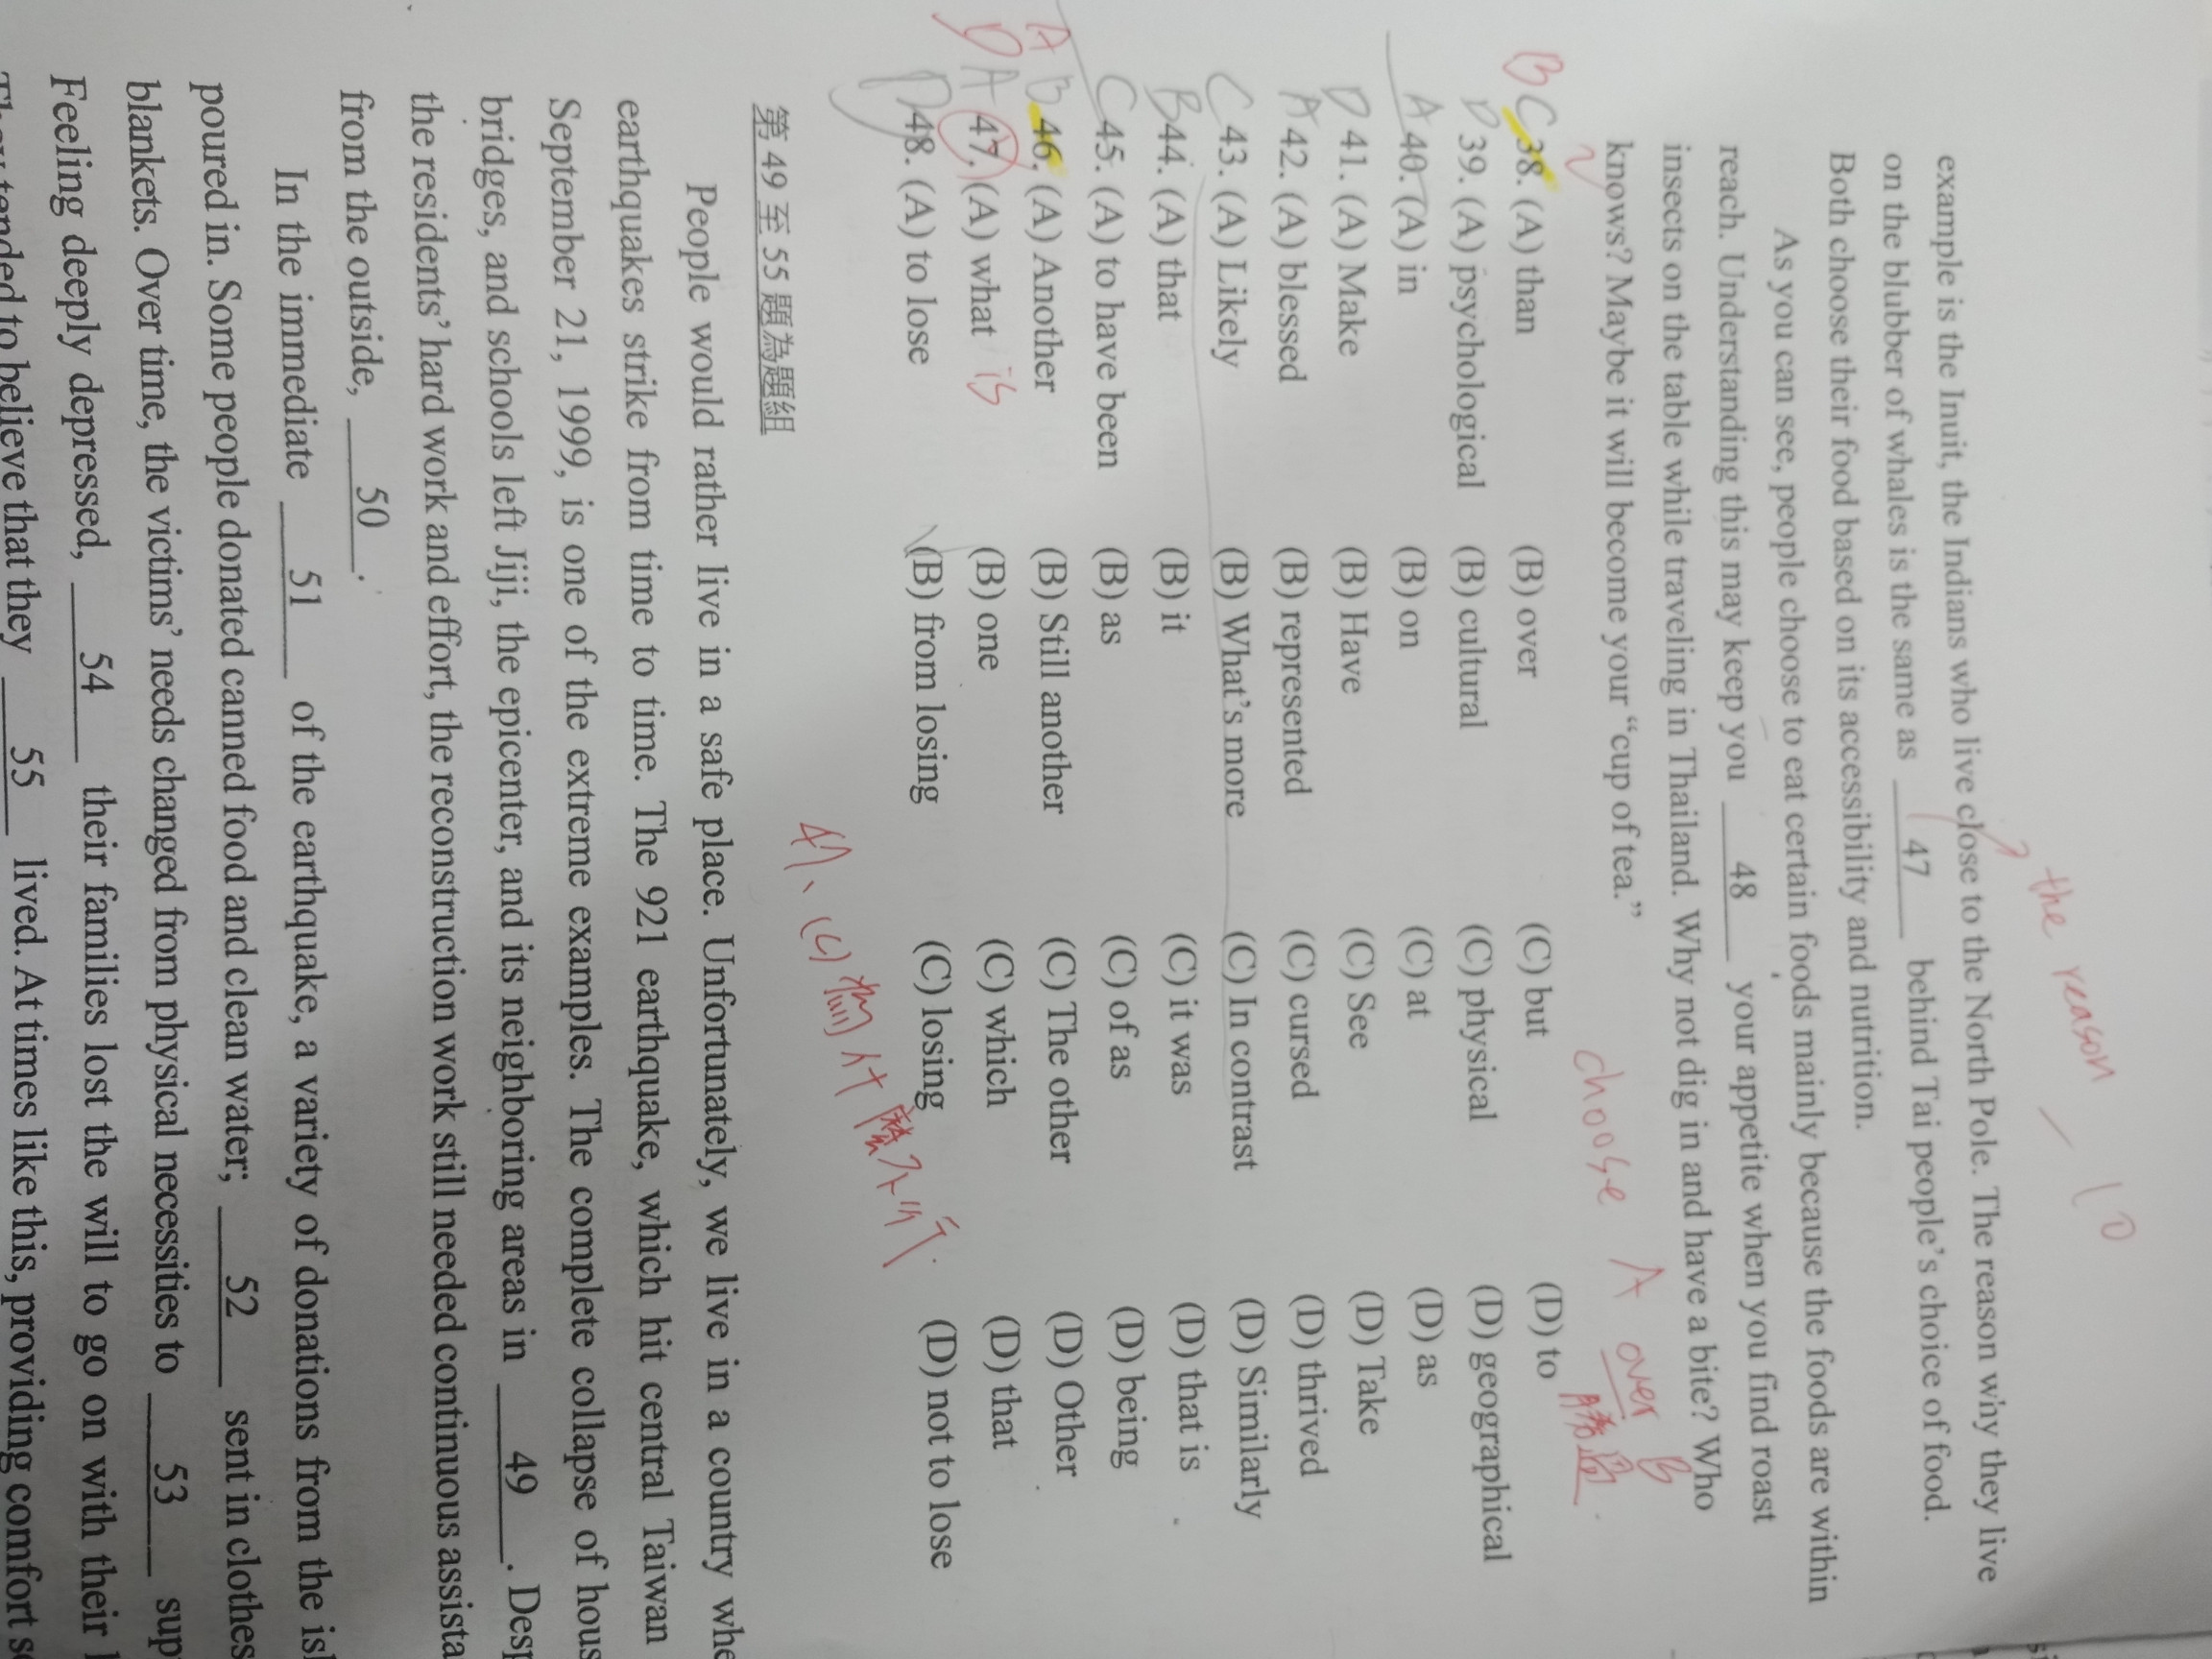 the reason
10
example is the Inuit, the Indians who live close to the North Pole. The reason why they live
on the blubber of whales is the same as 47 behind Tai people's choice of food.
Both choose their food based on its accessibility and nutrition.
As you can see, people choose to eat certain foods mainly because the foods are within
reach. Understanding this may keep you 48 your appetite when you find roast
insects on the table while traveling in Thailand. Why not dig in and have a bite? Who
knows? Maybe it will become your “cup of tea.”
choose A over B
B C 38. (A) than (B) over (C) but (D) to
D 39. (A) psychological (B) cultural (C) physical (D) geographical
A 40. (A) in (B) on (C) at (D) as
D 41. (A) Make (B) Have (C) See (D) Take
A 42. (A) blessed (B) represented (C) cursed (D) thrived
C 43. (A) Likely (B) What's more (C) In contrast (D) Similarly
B 44. (A) that (B) it (C) it was (D) that is
C 45. (A) to have been (B) as (C) of as (D) being
A B 46. (A) Another (B) Still another (C) The other (D) Other
D A 47. (A) what is (B) one (C) which (D) that
D 48. (A) to lose (B) from losing (C) losing (D) not to lose
47、(C)
第 49 至 55 題為題組
People would rather live in a safe place. Unfortunately, we live in a country whe
earthquakes strike from time to time. The 921 earthquake, which hit central Taiwan
September 21, 1999, is one of the extreme examples. The complete collapse of hous
bridges, and schools left Jiji, the epicenter, and its neighboring areas in 49 . Desp
the residents' hard work and effort, the reconstruction work still needed continuous assista
from the outside, 50 .
In the immediate 51 of the earthquake, a variety of donations from the isl
poured in. Some people donated canned food and clean water; 52 sent in clothes
blankets. Over time, the victims' needs changed from physical necessities to 53 sup
Feeling deeply depressed, 54 their families lost the will to go on with their l
They tended to believe that they 55 lived. At times like this, providing comfort se